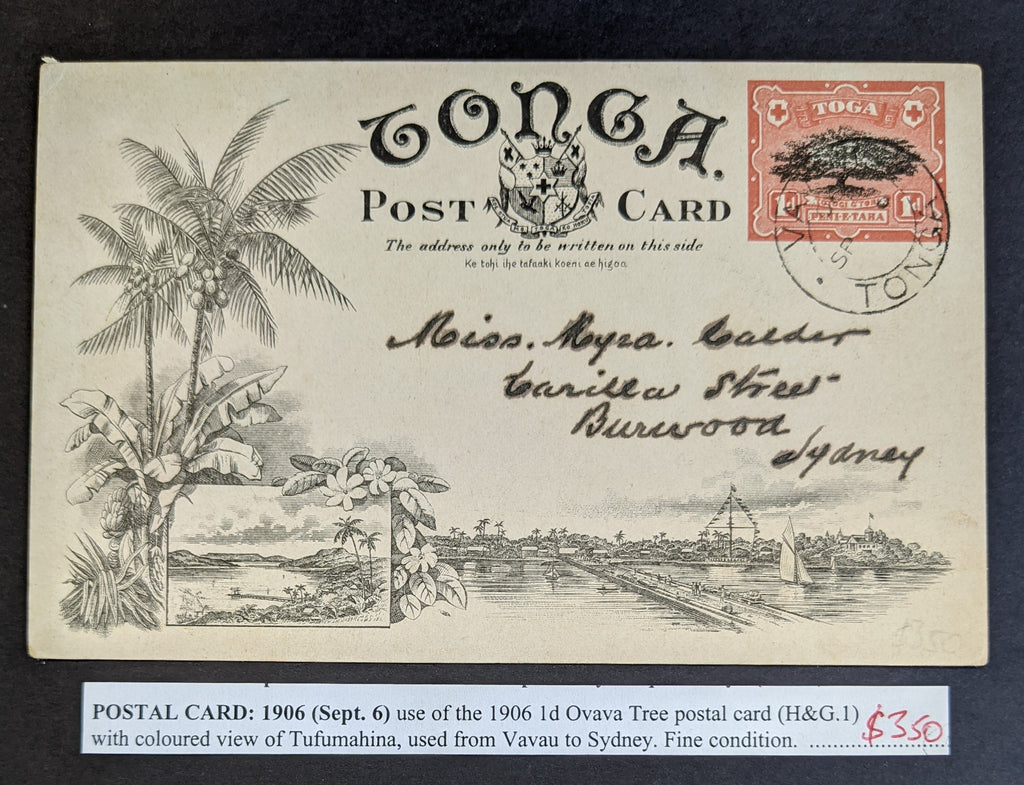 TONGA.
POST CARD
The address only to be written on this side
Ke tohi ihe tafaaki koeni ae higoa
TOGA
1d 1d
PENI-E-TAHA
VA
SP 6
TONGA
Miss. Myra. Calder
Carilla Street
Burwood
Sydney
$350
POSTAL CARD: 1906 (Sept. 6) use of the 1906 1d Ovava Tree postal card (H&G.1)
with coloured view of Tufumahina, used from Vavau to Sydney. Fine condition. ........................
$350